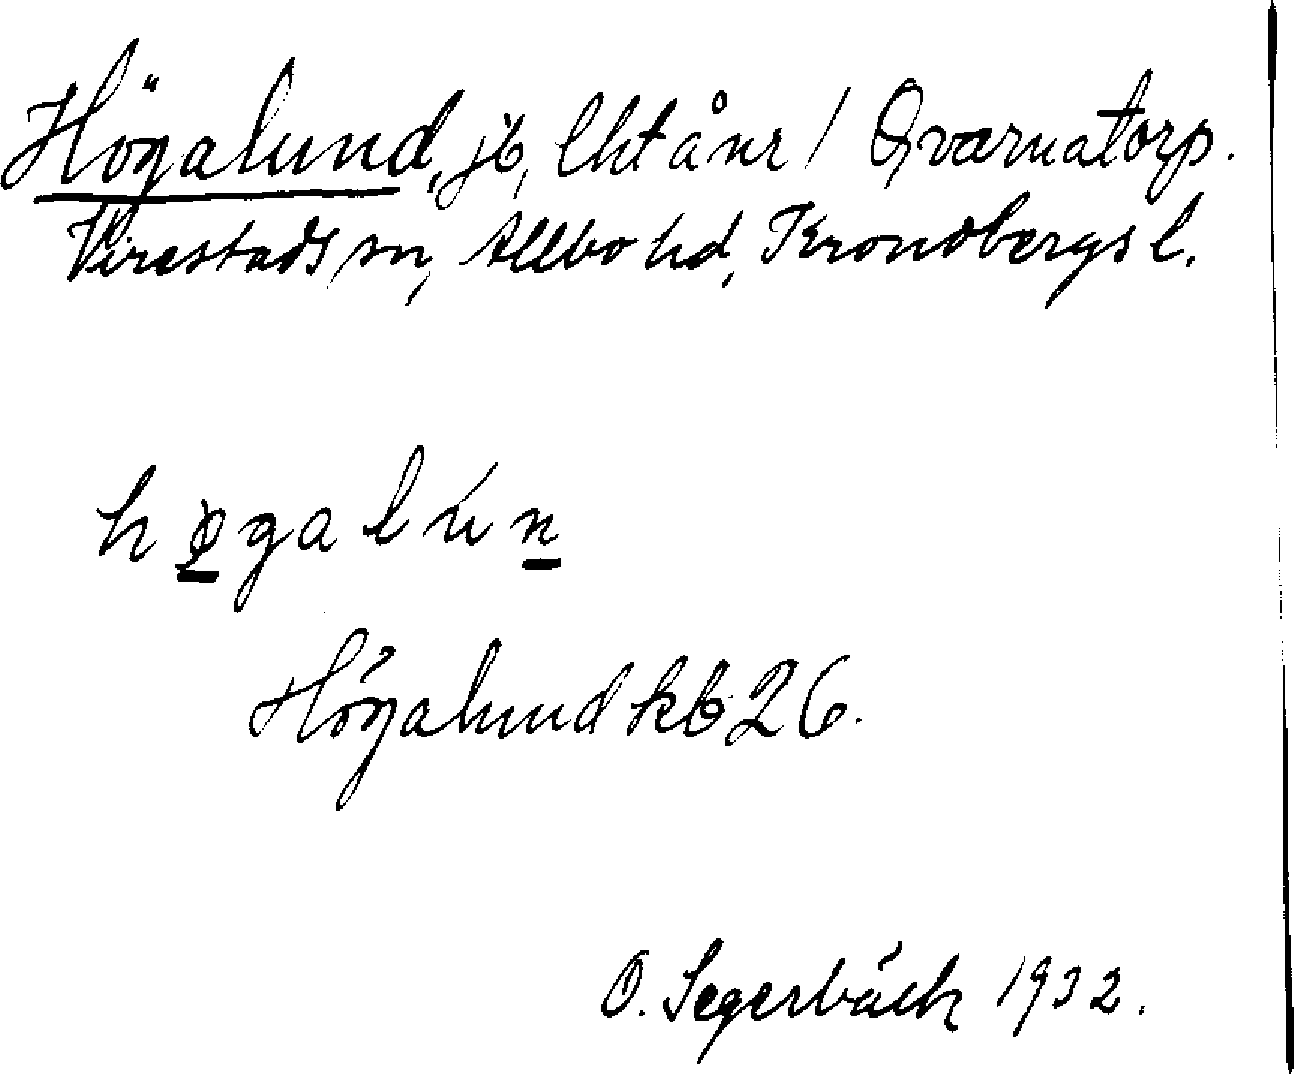 Högalund, jb, lht å nr 1 Qvarnatorp.
Virestads sn, Allbo hd, Kronobergs l.
høgalún
Högalund kb 26.
O. Segerbäck 1932.